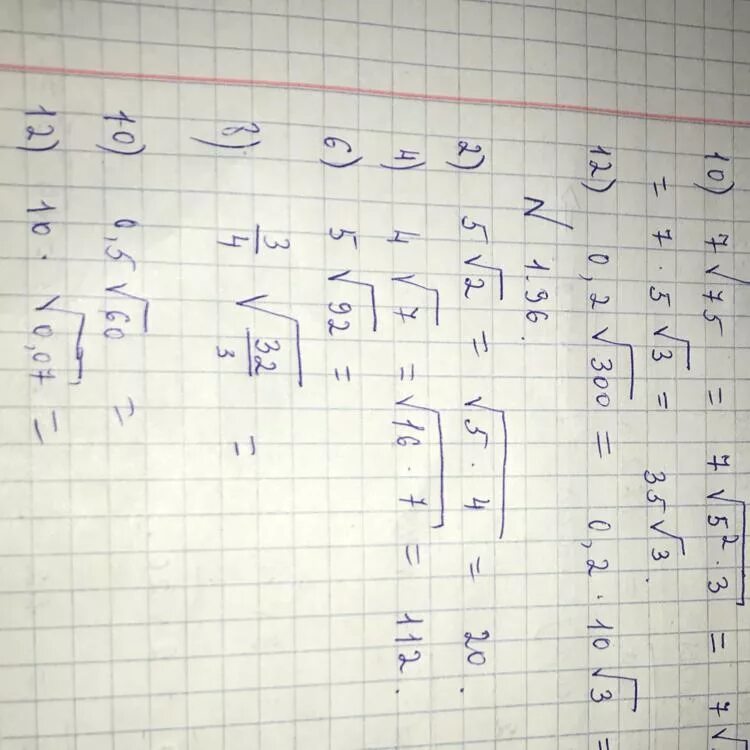 10) 7√75 = 7√5²·3 = 7√
= 7·5√3 = 35√3.
12) 0,2√300 = 0,2·10√3 =
N 1.36.
2) 5√2 = √5·4 = 20.
4) 4√7 = √16·7 = 112.
6) 5√92 =
8) 3/4 √32/3 =
10) 0,5√60 =
12) 10·√0,07 =